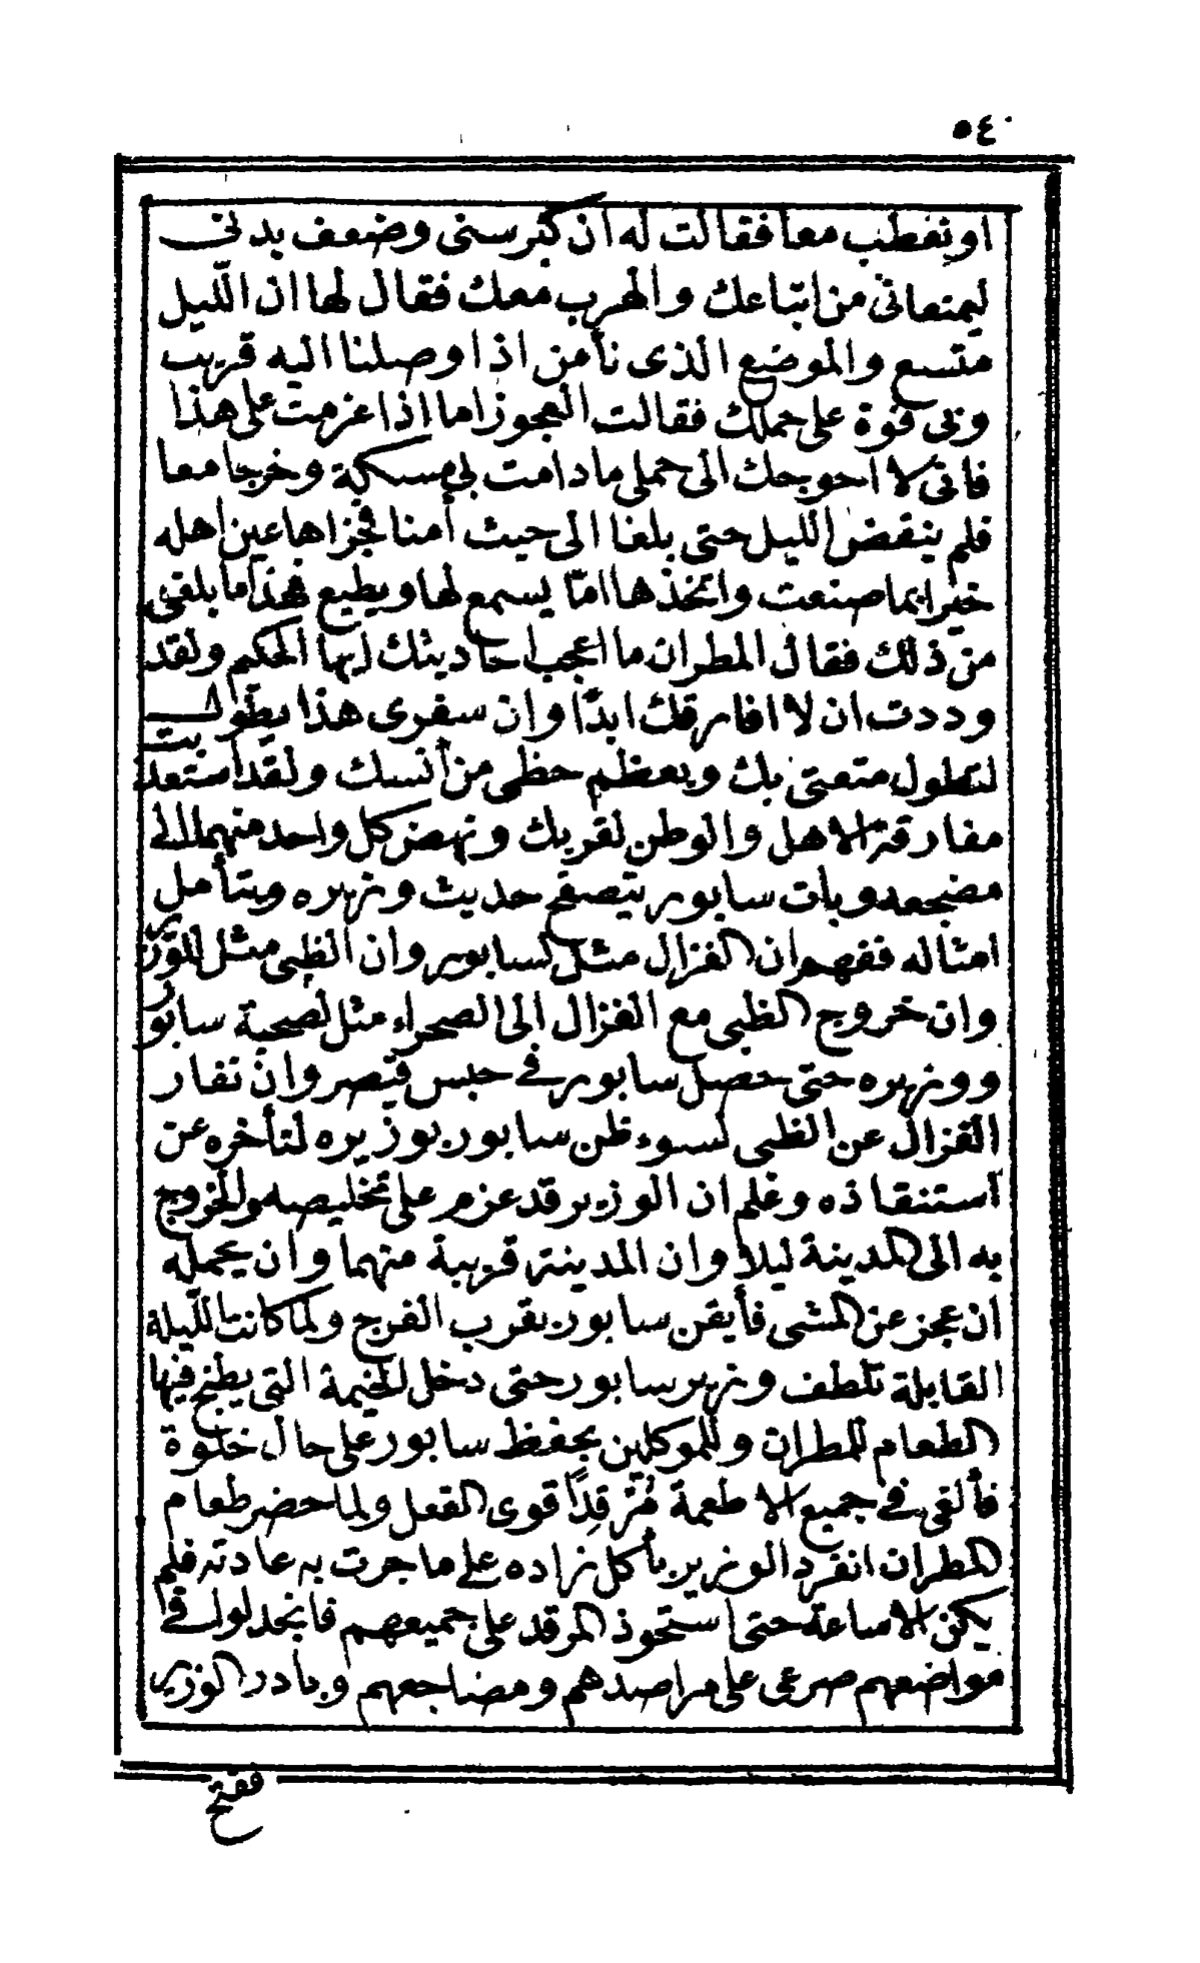 ٥٤
او نعطب معا فقالت له ان كبر سنى وضعف بدنى
ليمنعانى من اتباعك والهرب معك فقال لها ان الّليل
متسع والموضع الذى نأمن اذا وصلنا اليه قريب
وبى قوة على حملك فقالت العجوز اما اذا عزمت على هذا
فانى لا احوجك الى حملى ما دامت بى مسكة وخرجا معا
فلم ينقض الّليل حتى بلغا الى حيث أمنا فجزاها عين اهله
خيرا بما صنعت واتخذها امّا يسمع لها ويطيع فهذا ما بلغنى
من ذلك فقال المطران ما اعجب احاديثك ايها الحكيم ولقد
وددت ان لا افارقك ابدًا وان سفرى هذا يطول بت
لتطول متعتى بك ويعظم حظى من أنسك ولقد استعذ
مفارقة الاهل والوطن لقربك ونهض كل واحد منهما الى
مضجعه وبات سابور يتصفح حديث وزيره ويتأمل
امثاله ففهم ان الغزال مثل لسابور وان الظبى مثل للوزير
وان خروج الظبى مع الغزال الى الصحراء مثل لصحبة سابور
ووزيره حتى حصل سابور فى حبس قيصر وان نفار
الغزال عن الظبى لسوء ظن سابور بوزيره لتأخره عن
استنقاذه وعلم ان الوزير قد عزم على تخليصه والخروج
به الى المدينة ليلا وان المدينة قريبة منهما وان يحمله
ان عجز عن المشى فأيقن سابور بقرب الفرج ولما كانت الّليلة
القابلة تلطف وزير سابور حتى دخل الخيمة التى يطبخ فيها
الطعام للمطران وللموكلين بحفظ سابور على حال خلوة
فألقى فى جميع الاطعمة مُرْقِدًا قوى الفعل ولما حضر طعام
المطران انفرد الوزير يأكل زاده على ما جرت به عادته فلم
يكن الا ساعة حتى استحوذ المرقد على جميعهم فانجدلوا فى
مواضعهم صرعى على مراصدهم ومضاجعهم وبادر الوزير
ففتح